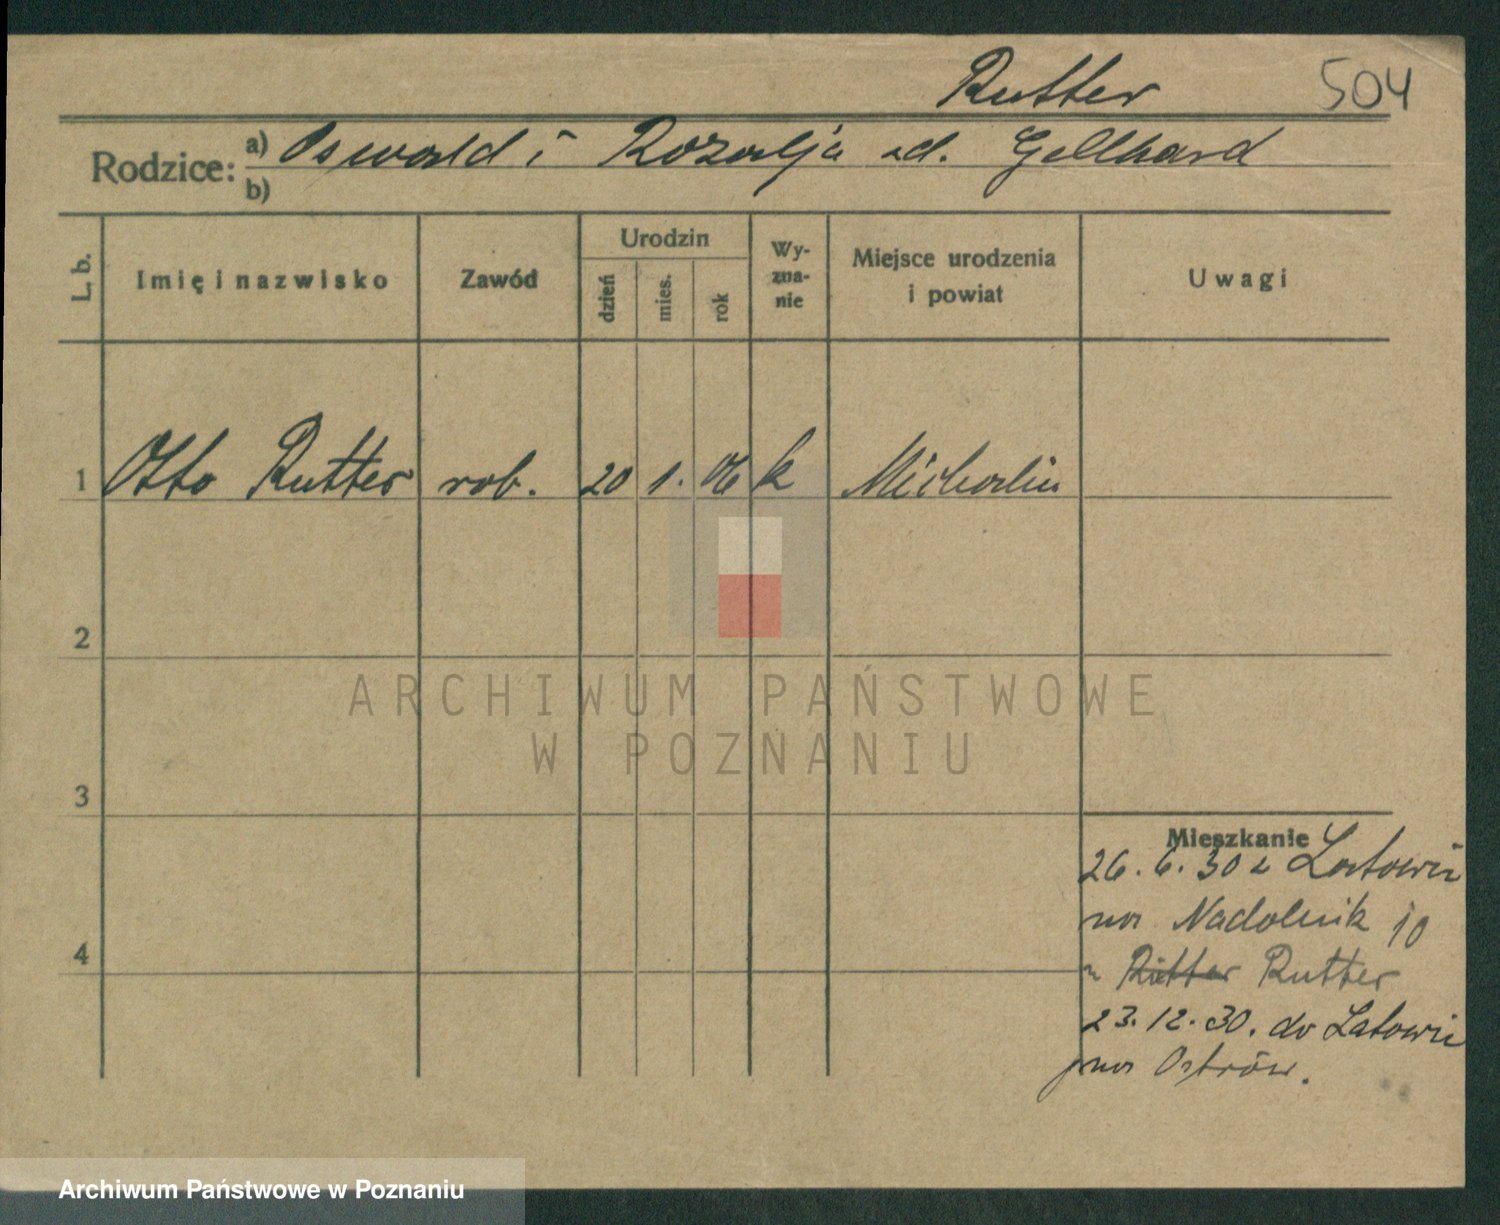 Rutter 504
Rodzice: a) Oswald i Rozalja zd. Gellhard
b)
L. b. Imię i nazwisko Zawód Urodzin dzień mies. rok Wy-zna-nie Miejsce urodzenia i powiat Uwagi
1 Otto Rutter rob. 20 1. 06 k Michalin
2
3
4
Mieszkanie
26. 6. 30 z Latowic
na Nadolnik 10
Rutter
23. 12. 30. do Latowic
Ostrów.
ARCHIWUM PAŃSTWOWE
W POZNANIU
Archiwum Państwowe w Poznaniu